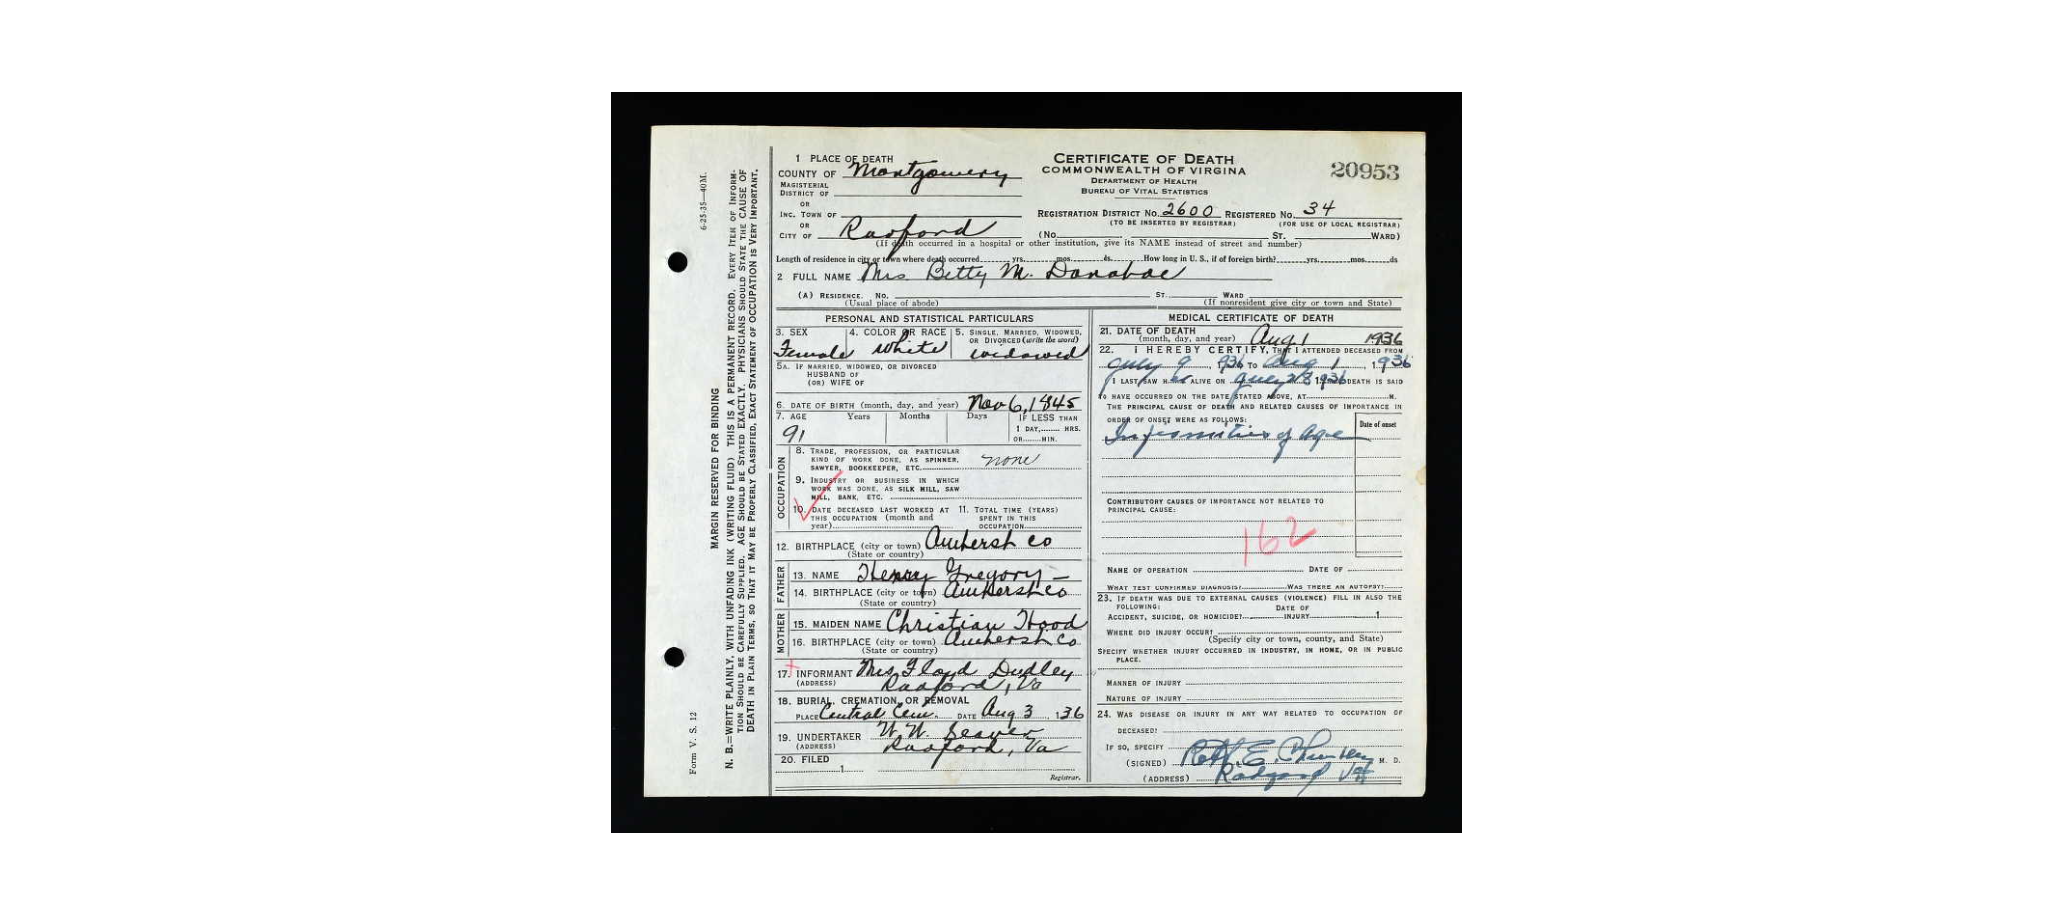 1 PLACE OF DEATH
COUNTY OF Montgomery
MAGISTERIAL DISTRICT OF
OR
INC. TOWN OF
OR
CITY OF Radford
CERTIFICATE OF DEATH
COMMONWEALTH OF VIRGINIA
DEPARTMENT OF HEALTH
BUREAU OF VITAL STATISTICS
20953
REGISTRATION DISTRICT NO. 2600 REGISTERED NO. 34
(TO BE INSERTED BY REGISTRAR) (FOR USE OF LOCAL REGISTRAR)
(No. ST. WARD)
(If death occurred in a hospital or other institution, give its NAME instead of street and number)
Length of residence in city or town where death occurred yrs. mos. ds. How long in U. S., if of foreign birth? yrs. mos. ds
2 FULL NAME Mrs Betty M. Donahoe
(A) RESIDENCE. No. ST. WARD
(Usual place of abode) (If nonresident give city or town and State)
PERSONAL AND STATISTICAL PARTICULARS
3. SEX 4. COLOR OR RACE 5. SINGLE, MARRIED, WIDOWED, OR DIVORCED (write the word)
Female White widowed
5A. IF MARRIED, WIDOWED, OR DIVORCED
HUSBAND OF
(OR) WIFE OF
6. DATE OF BIRTH (month, day, and year) Nov 6, 1845
7. AGE Years Months Days IF LESS THAN
1 DAY, HRS.
OR MIN.
91
OCCUPATION
8. TRADE, PROFESSION, OR PARTICULAR
KIND OF WORK DONE, AS SPINNER,
SAWYER, BOOKKEEPER, ETC. none
9. INDUSTRY OR BUSINESS IN WHICH
WORK WAS DONE, AS SILK MILL, SAW
MILL, BANK, ETC.
10. DATE DECEASED LAST WORKED AT 11. TOTAL TIME (YEARS)
THIS OCCUPATION (month and SPENT IN THIS
year) OCCUPATION
12. BIRTHPLACE (city or town) Amherst co
(State or country)
FATHER
13. NAME Henry Gregory
14. BIRTHPLACE (city or town) Amherst co
(State or country)
MOTHER
15. MAIDEN NAME Christian Wood
16. BIRTHPLACE (city or town) Amherst Co
(State or country)
17. INFORMANT Mrs Floyd Dudley
(ADDRESS) Radford, Va
18. BURIAL, CREMATION OR REMOVAL
PLACE Central Cem. DATE Aug 3, 136
19. UNDERTAKER W. W. Seaver
(ADDRESS) Radford, Va
20. FILED
1
Registrar.
MEDICAL CERTIFICATE OF DEATH
21. DATE OF DEATH
(month, day, and year) Aug 1 1936
22. I HEREBY CERTIFY, THAT I ATTENDED DECEASED FROM
July 9, 1936 TO Aug 1, 1936
I LAST SAW H er ALIVE ON July 28 1936 DEATH IS SAID
TO HAVE OCCURRED ON THE DATE STATED ABOVE, AT M.
THE PRINCIPAL CAUSE OF DEATH AND RELATED CAUSES OF IMPORTANCE IN
ORDER OF ONSET WERE AS FOLLOWS:
Date of onset
Infirmities of Age
CONTRIBUTORY CAUSES OF IMPORTANCE NOT RELATED TO
PRINCIPAL CAUSE:
162
NAME OF OPERATION DATE OF
WHAT TEST CONFIRMED DIAGNOSIS? WAS THERE AN AUTOPSY?
23. IF DEATH WAS DUE TO EXTERNAL CAUSES (VIOLENCE) FILL IN ALSO THE
FOLLOWING: DATE OF
ACCIDENT, SUICIDE, OR HOMICIDE? INJURY 1
WHERE DID INJURY OCCUR?
(Specify city or town, county, and State)
SPECIFY WHETHER INJURY OCCURRED IN INDUSTRY, IN HOME, OR IN PUBLIC
PLACE.
MANNER OF INJURY
NATURE OF INJURY
24. WAS DISEASE OR INJURY IN ANY WAY RELATED TO OCCUPATION OF
DECEASED?
IF SO, SPECIFY
(SIGNED) M. D.
(ADDRESS) Radford Va
MARGIN RESERVED FOR BINDING
N. B.—WRITE PLAINLY, WITH UNFADING INK (WRITING FLUID) THIS IS A PERMANENT RECORD. EVERY ITEM OF INFORM-
TION SHOULD BE CAREFULLY SUPPLIED. AGE SHOULD BE STATED EXACTLY. PHYSICIANS SHOULD STATE THE CAUSE OF
DEATH IN PLAIN TERMS, SO THAT IT MAY BE PROPERLY CLASSIFIED. EXACT STATEMENT OF OCCUPATION IS VERY IMPORTANT.
Form V. S. 12
6-25-35—40M.